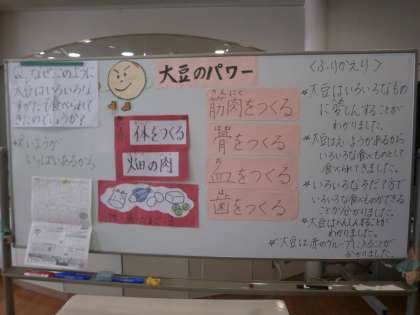 Q.なぜ、このように
大豆はいろいろな
すがたで食べられて
きたのでしょうか?
えいようが
いっぱいあるから
大豆のパワー
体をつくる
畑の肉
きんにく
筋肉をつくる
骨をつくる
血をつくる
歯をつくる
〈ふりかえり〉
大豆はいろいろなもの
に変しんすることが
わかりました。
大豆はえいようがあるから
いろいろな食べものとして
食べられてきました。
いろいろな
いろいろな食べものができる
ことが分かりました。
大豆はへんしんすることが
わかりました。
大豆は赤のグループということが
わかりました。